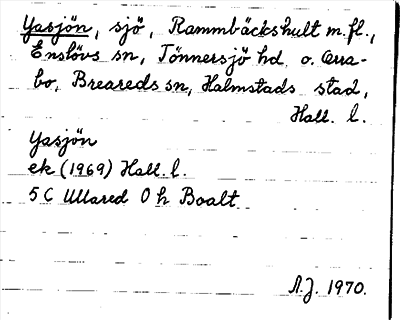 Yasjön, sjö, Rammbäckshult m.fl.,
Enslövs sn, Tönnersjö hd o. Årra-
bo, Breareds sn, Halmstads stad,
Hall. l.
Yasjön
ek (1969) Hall. l.
5 C Ullared 0 h Boalt
A.J. 1970.